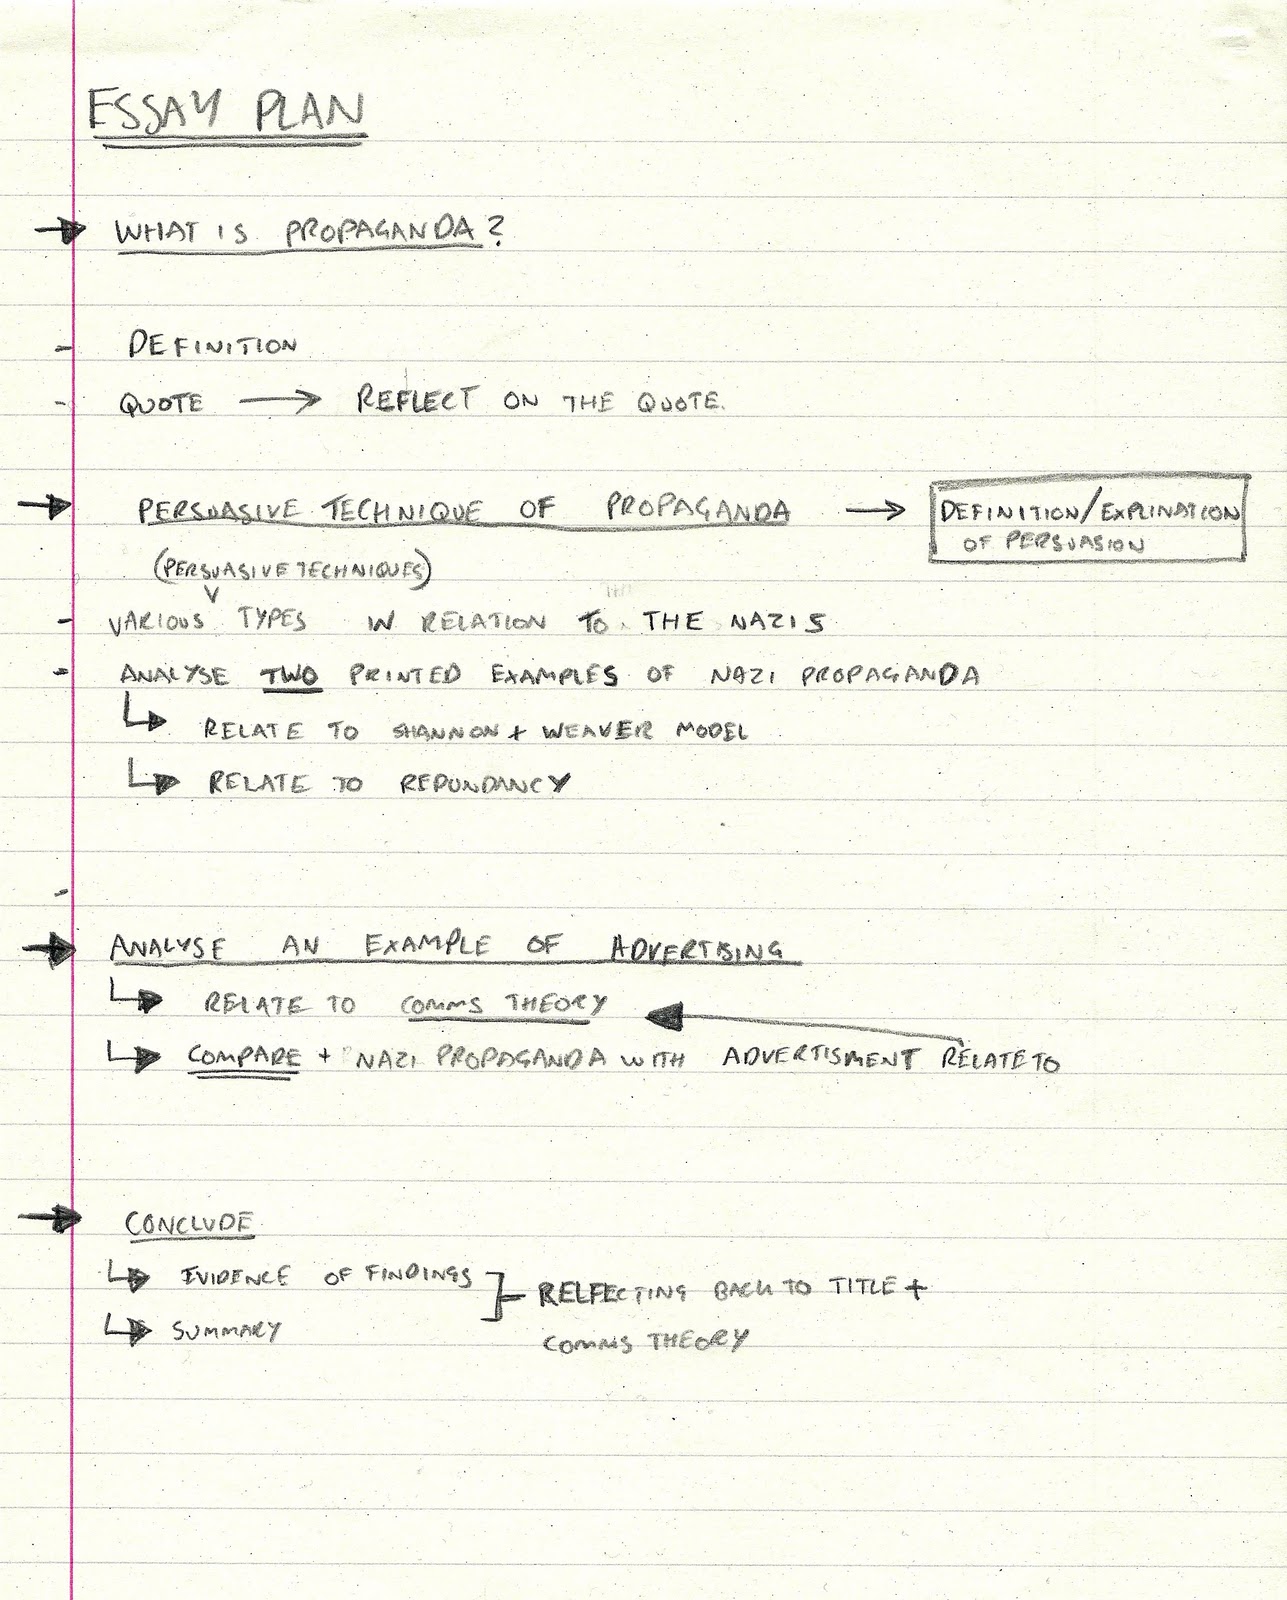 ESSAY PLAN
WHAT IS PROPAGANDA?
- DEFINITION
- QUOTE → REFLECT ON THE QUOTE.
PERSUASIVE TECHNIQUE OF PROPAGANDA → DEFINITION/EXPLINATION
OF PERSUASION
(PERSUASIVE TECHNIQUES)
- VARIOUS TYPES IN RELATION TO THE NAZIS
- ANALYSE TWO PRINTED EXAMPLES OF NAZI PROPAGANDA
RELATE TO SHANNON + WEAVER MODEL
RELATE TO REDUNDANCY
-
ANALYSE AN EXAMPLE OF ADVERTISING
RELATE TO COMMS THEORY
COMPARE + NAZI PROPAGANDA WITH ADVERTISMENT RELATE TO
CONCLUDE
EVIDENCE OF FINDINGS
RELFECTING BACK TO TITLE +
SUMMARY
COMMS THEORY